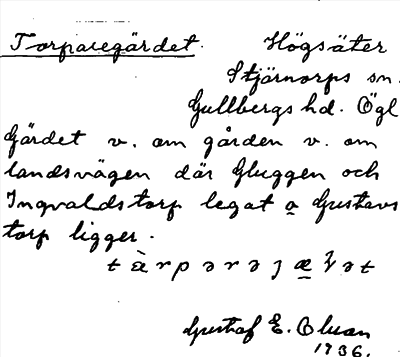 Torparegärdet. Högsäter
Stjärnorps sn.
Gullbergs hd. Ögl
Gärdet v. om gården v. om
landsvägen där Gluggen och
Ingvaldstorp legat o Gustavs
torp ligger.
Gustaf E. Oluan
1936.